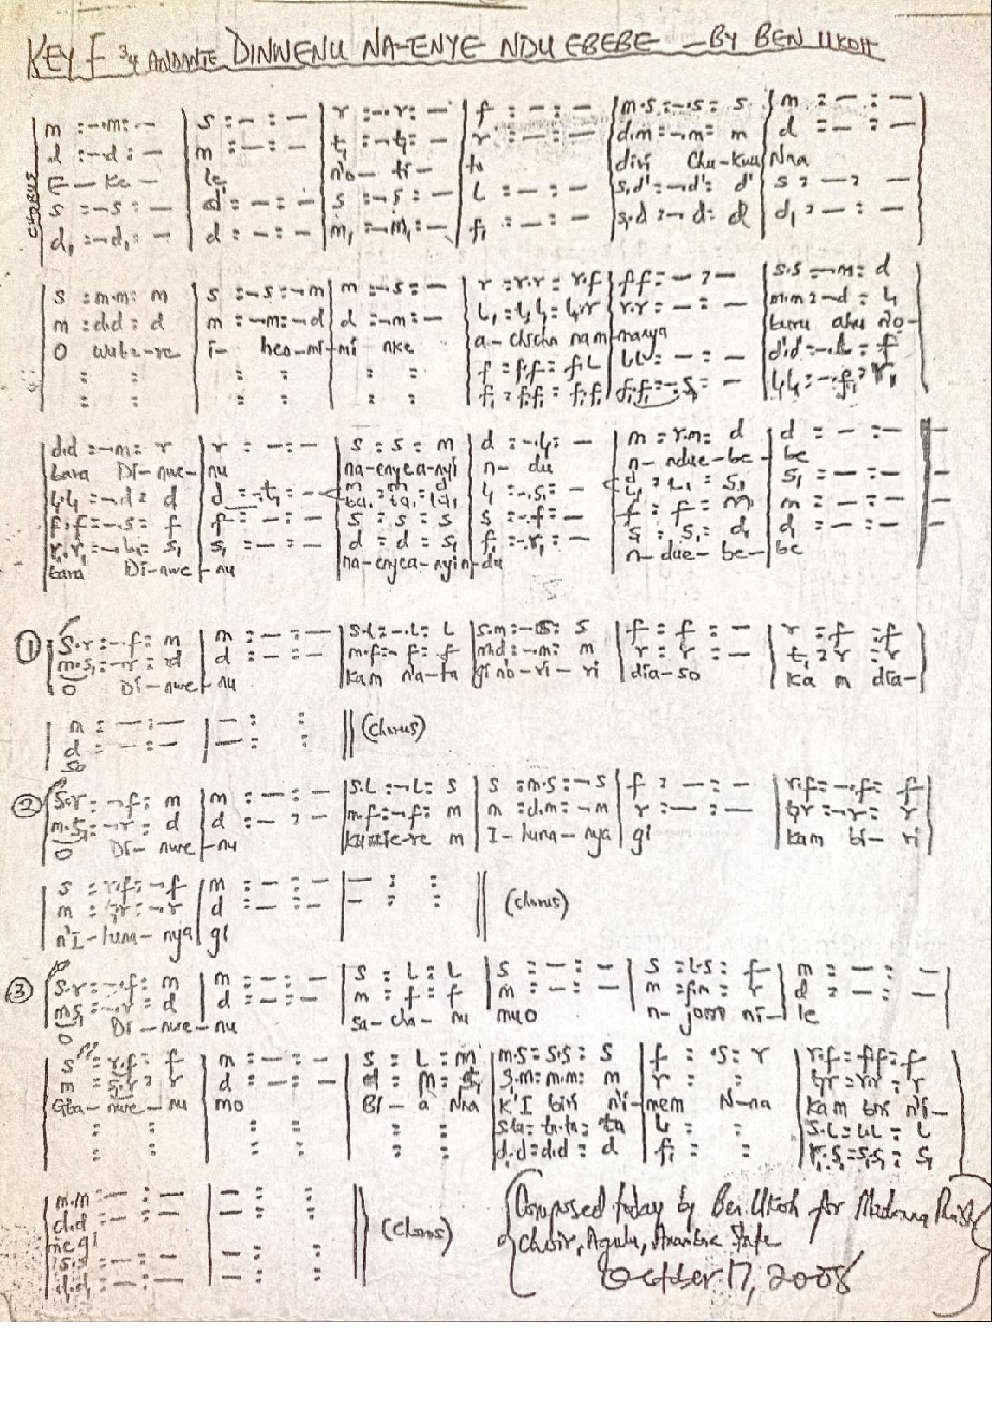 KEY F 3/4 ANDANTE DINWENU NA-ENYE NDU EBEBE - BY BEN UKOH
CHORUS
m :-.m: - | s : - : - | r :-.r: - | f : - : - | m.s:-.s: s | m : - : -
d :-.d: - | m : - : - | t₁ :-.t₁: - | r : - : - | d.m:-.m: m | d : - : -
E - Ke - | le | n'o - ti - | to | divi Chu-kwu | Nna
s :-.s: - | d' : - : - | s :-.s: - | l : - : - | s.d':-.d': d' | s : - : -
d₁ :-.d₁: - | d : - : - | m₁ :-.m₁: - | f₁ : - : - | s₁.d:-.d: d | d₁ : - : -
s :m.m: m | s :-.s:-.m | m :-.s: - | r :r.r: r.f | f.f: - : - | s.s:-.m: d
m :d.d: d | m :-.m:-.d | d :-.m: - | r.r: - : -
O wube-re | i- heo-mi-mi nke | a-chicha nam manya | buru ahu n'o-
f :f.f: f.l | l.l: - : - | d'.d':-.l: f
d.d:-.m: r | r : - : - | s : s : m | d :-.l₁: - | m :r.m: d | d : - : -
bara Di-nwe-nu | na-enyea-nyi | n- du | n- ndue-be- | be
l₁.l₁:-.d: d | d :-.t₁: - | l₁ :-.s₁: - | s₁ : - : -
f.f:-.s: f | f : - : - | s : s : s | s :-.f: - | f : f : m | m : - : -
s₁ : - : - | d : d : s₁ | f₁ :-.r₁: - | s₁ : s₁ : d | d : - : -
bara Di-nwe-nu | na-enyea-nyi n-du | n-due-be-be
① s.r:-.f: m | m : - : - | s.l:-.l: l | s.m:-.s: s | f : f : - | r : f : f
m.s₁:-.r: d | d : - : - | m.f:-.f: f | m.d:-.m: m | r : r : - | t₁ : r : r
O Di-nwe-nu | kam na-ta | gi no-ri-ri | dia-so | ka m dia-
m : - : - | - : : (Chorus)
d : - : - | - : :
so
② s.r:-.f: m | m : - : - | s.l:-.l: s | s :m.s:-.s | f : - : - | r.f:-.f: f
m.s₁:-.r: d | d : - : - | m.f:-.f: m | m :d.m:-.m | r : - : - | t₁.r:-.r: r
O Di-nwe-nu | kwere-re m | I-huna-nya | gi | kam bi-ri
s :r.f:-.f | m : - : - | - : : (Chorus)
m :t₁.r:-.r | d : - : - | - : :
n'I-huna-nya | gi
③ s.r:-.f: m | m : - : - | s : l : l | s : - : - | s :l.s: f | m : - : -
m.s₁:-.r: d | d : - : - | m : f : f | m : - : - | m :f.m: r | d : - : -
O Di-nwe-nu | sa-cha-nu | muo | n-jom ni-le
s :r.f: f | m : - : - | s : l : m | m.s:s.s: s | f : .s: r | r.f:f.f: f
m :t₁.r: r | d : - : - | d : m : s₁ | s₁.m:m.m: m | r : : | t₁.r:r.r: r
Gba-nwe-nu | mo | Bi-a Nna | k'I biri n'i-mem N-na | kam biri n'i-
s.ta:ta.ta: ta | l : : | s.l:l.l: l
d.d:d.d: d | f₁ : : | r₁.s₁:s₁.s₁: s₁
m.m: - : - | - : :
d.d: - : - | - : : (Chorus)
me gi
Composed today by Ben Ukoh for Madonna Parish
choir, Agulu, Anambra State
October 17, 2008